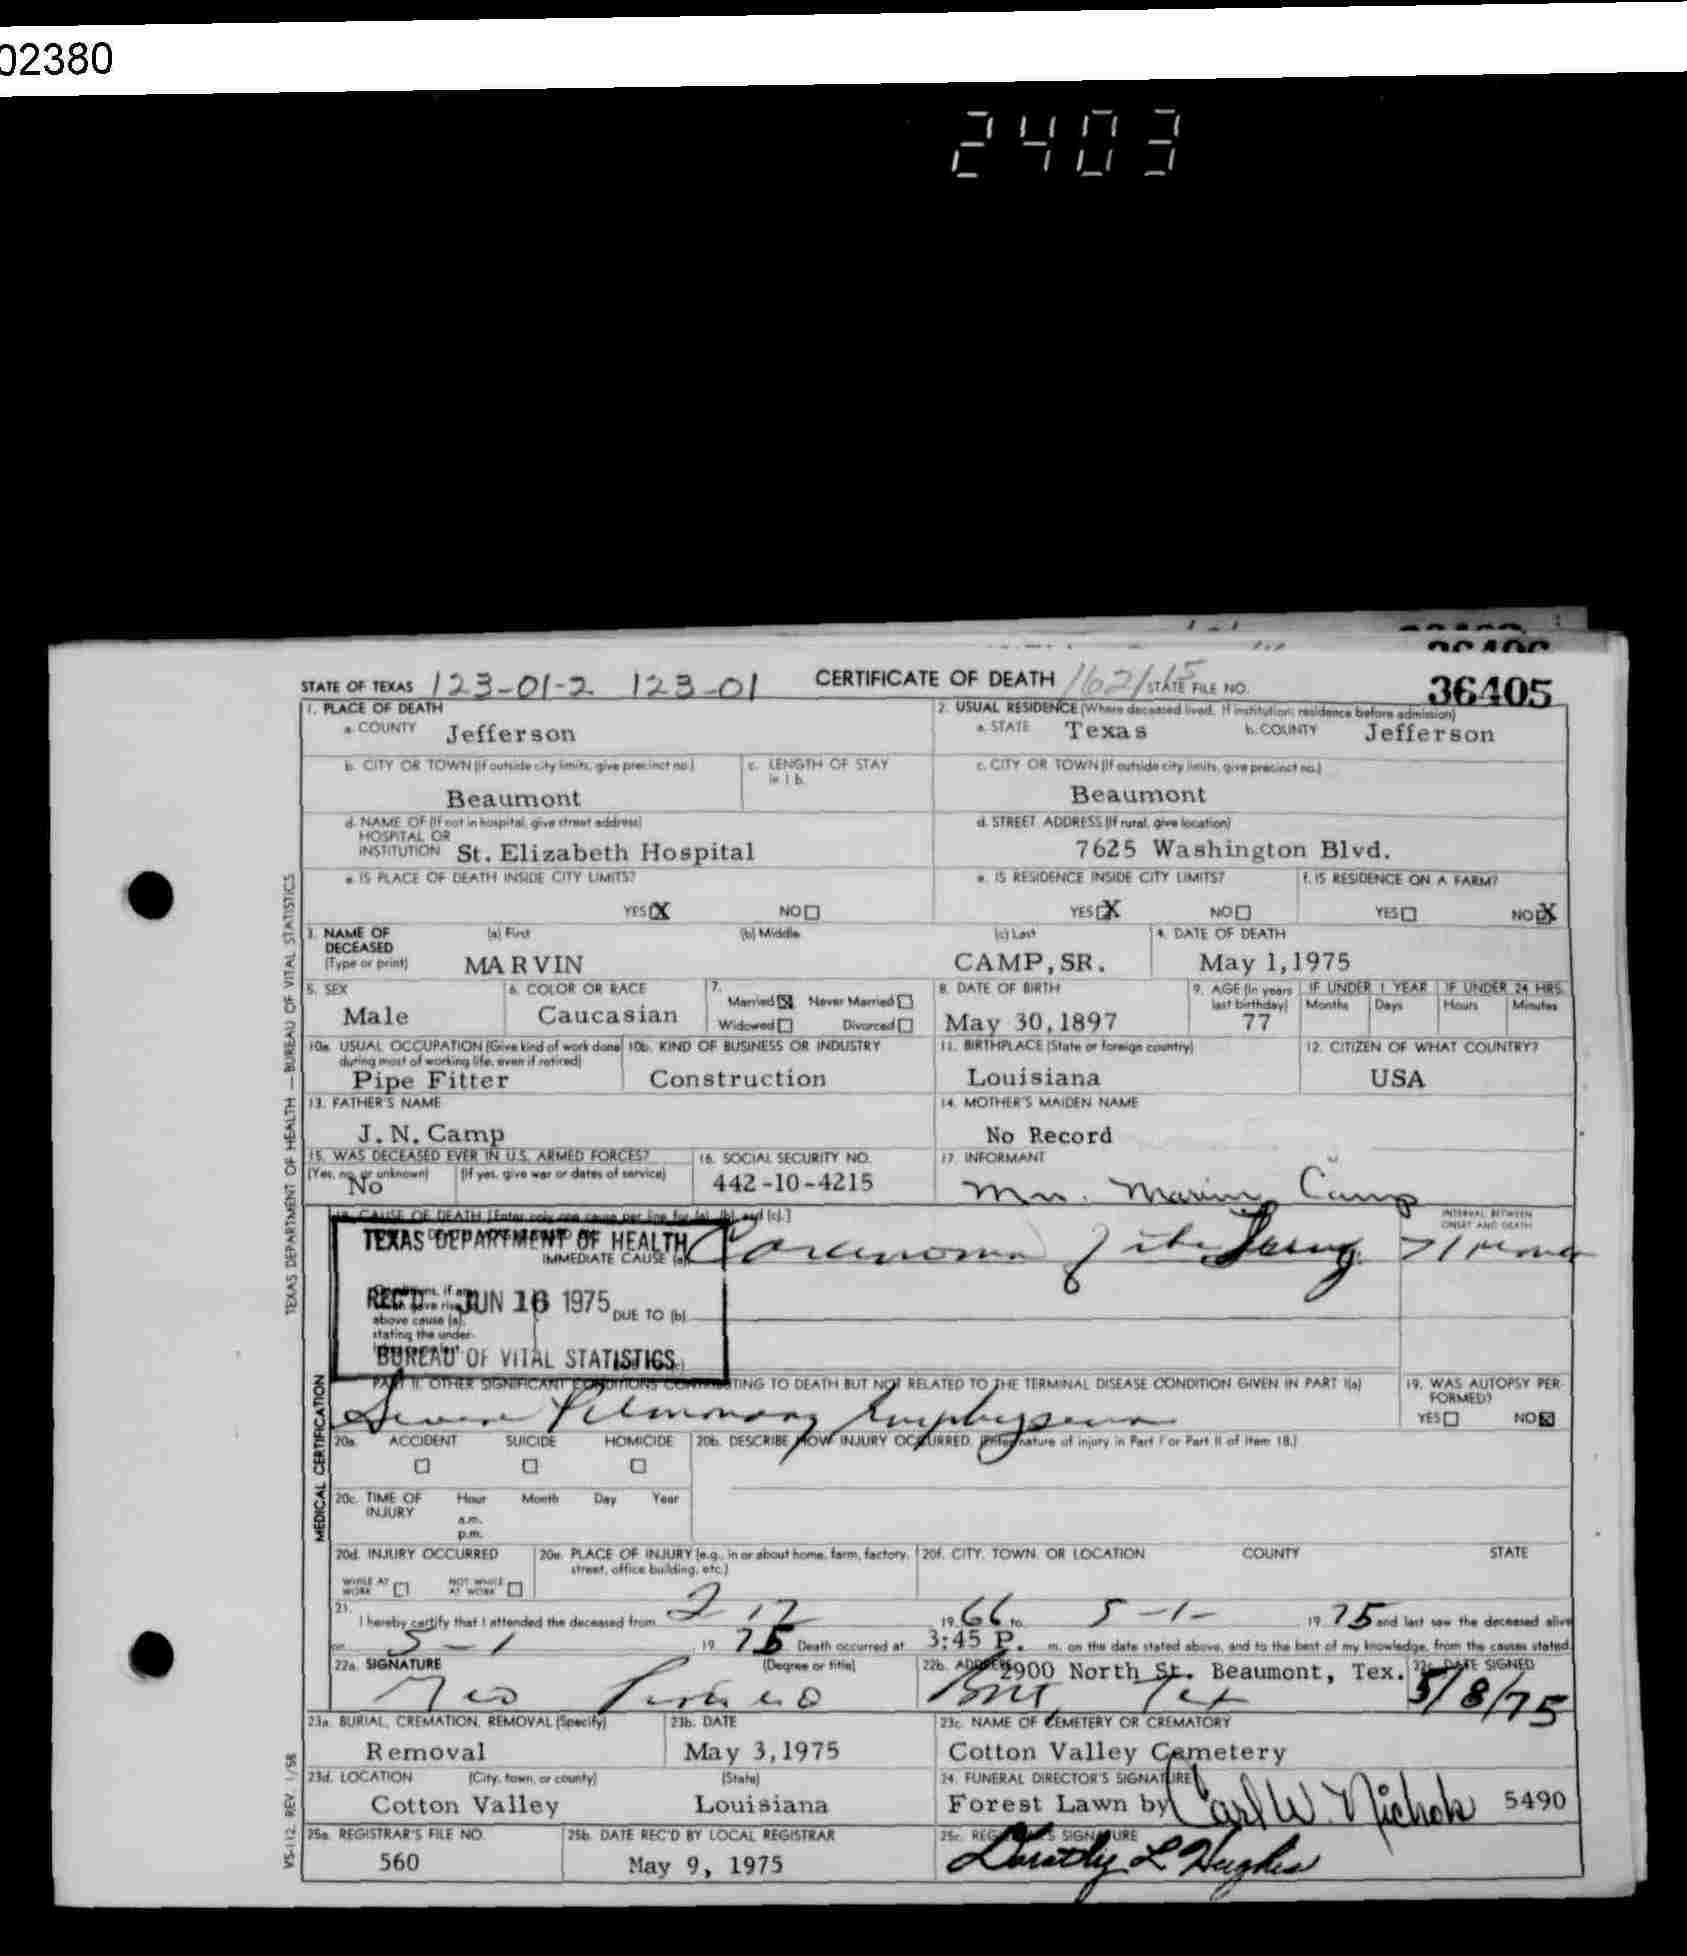 02380
2403
36406
STATE OF TEXAS 123-01-2 123-01 CERTIFICATE OF DEATH 162115 STATE FILE NO. 36405
1. PLACE OF DEATH
a. COUNTY Jefferson
2. USUAL RESIDENCE (Where deceased lived. If institution: residence before admission)
a. STATE Texas b. COUNTY Jefferson
b. CITY OR TOWN (If outside city limits, give precinct no.)
Beaumont
c. LENGTH OF STAY
in 1 b.
c. CITY OR TOWN (If outside city limits, give precinct no.)
Beaumont
d. NAME OF (If not in hospital, give street address)
HOSPITAL OR
INSTITUTION St. Elizabeth Hospital
d. STREET ADDRESS (If rural, give location)
7625 Washington Blvd.
e. IS PLACE OF DEATH INSIDE CITY LIMITS?
YES X NO
e. IS RESIDENCE INSIDE CITY LIMITS?
YES X NO
f. IS RESIDENCE ON A FARM?
YES NO X
3. NAME OF
DECEASED
(Type or print)
(a) First (b) Middle (c) Last
MARVIN CAMP, SR.
4. DATE OF DEATH
May 1, 1975
5. SEX
Male
6. COLOR OR RACE
Caucasian
7.
Married X Never Married
Widowed Divorced
8. DATE OF BIRTH
May 30, 1897
9. AGE (In years
last birthday)
77
IF UNDER 1 YEAR
Months Days
IF UNDER 24 HRS.
Hours Minutes
10a. USUAL OCCUPATION (Give kind of work done
during most of working life, even if retired)
Pipe Fitter
10b. KIND OF BUSINESS OR INDUSTRY
Construction
11. BIRTHPLACE (State or foreign country)
Louisiana
12. CITIZEN OF WHAT COUNTRY?
USA
13. FATHER'S NAME
J. N. Camp
14. MOTHER'S MAIDEN NAME
No Record
15. WAS DECEASED EVER IN U.S. ARMED FORCES?
(Yes, no, or unknown) (If yes, give war or dates of service)
No
16. SOCIAL SECURITY NO.
442-10-4215
17. INFORMANT
Mrs. Marvin Camp
18. CAUSE OF DEATH [Enter only one cause per line for (a), (b), and (c).]
INTERVAL BETWEEN
ONSET AND DEATH
TEXAS DEPARTMENT OF HEALTH
IMMEDIATE CAUSE (a) Carcinoma of the Lung
REC'D JUN 16 1975
above cause (a),
stating the under-
DUE TO (b)
BUREAU OF VITAL STATISTICS
PART II. OTHER SIGNIFICANT CONDITIONS CONTRIBUTING TO DEATH BUT NOT RELATED TO THE TERMINAL DISEASE CONDITION GIVEN IN PART I(a)
Severe Pulmonary Emphysema
19. WAS AUTOPSY PER-
FORMED?
YES NO X
20a. ACCIDENT SUICIDE HOMICIDE
20b. DESCRIBE HOW INJURY OCCURRED. (Enter nature of injury in Part I or Part II of Item 18.)
20c. TIME OF
INJURY
Hour Month Day Year
a.m.
p.m.
20d. INJURY OCCURRED
WHILE AT
WORK
NOT WHILE
AT WORK
20e. PLACE OF INJURY (e.g., in or about home, farm, factory,
street, office building, etc.)
20f. CITY, TOWN, OR LOCATION COUNTY STATE
21. I hereby certify that I attended the deceased from 2 17 1966 to 5-1- 1975 and last saw the deceased alive
on 5-1 1975 Death occurred at 3:45 P. m. on the date stated above, and to the best of my knowledge, from the causes stated.
22a. SIGNATURE (Degree or title)
22b. ADDRESS 2900 North St. Beaumont, Tex.
Bmt Tex
22c. DATE SIGNED
5/8/75
23a. BURIAL, CREMATION, REMOVAL (Specify)
Removal
23b. DATE
May 3, 1975
23c. NAME OF CEMETERY OR CREMATORY
Cotton Valley Cemetery
23d. LOCATION (City, town, or county) (State)
Cotton Valley Louisiana
24. FUNERAL DIRECTOR'S SIGNATURE
Forest Lawn by Carl W. Nichols 5490
25a. REGISTRAR'S FILE NO.
560
25b. DATE REC'D BY LOCAL REGISTRAR
May 9, 1975
25c. REGISTRAR'S SIGNATURE
Dorothy L Hughes
TEXAS DEPARTMENT OF HEALTH — BUREAU OF VITAL STATISTICS
MEDICAL CERTIFICATION
VS-112, REV. 1/58